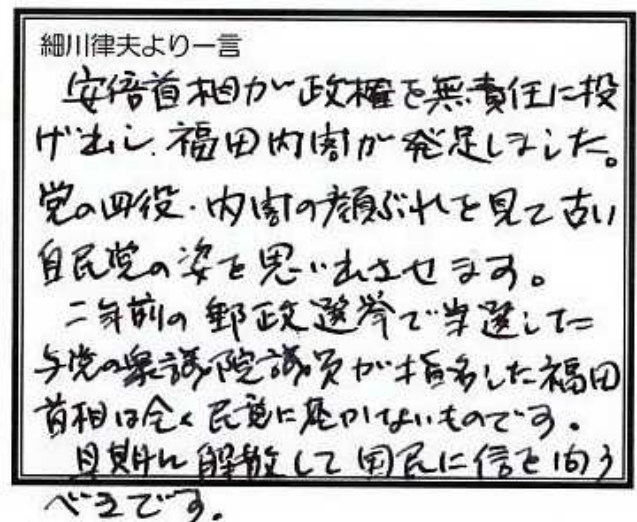 細川律夫より一言
安倍首相が政権を無責任に投
げ出し、福田内閣が発足しました。
党の四役・内閣の顔ぶれを見て古い
自民党の姿を思い出させます。
二年前の郵政選挙で当選した
与党の衆議院議員が指名した福田
首相は全く民意に基かないものです。
早期に解散して国民に信を問う
べきです。